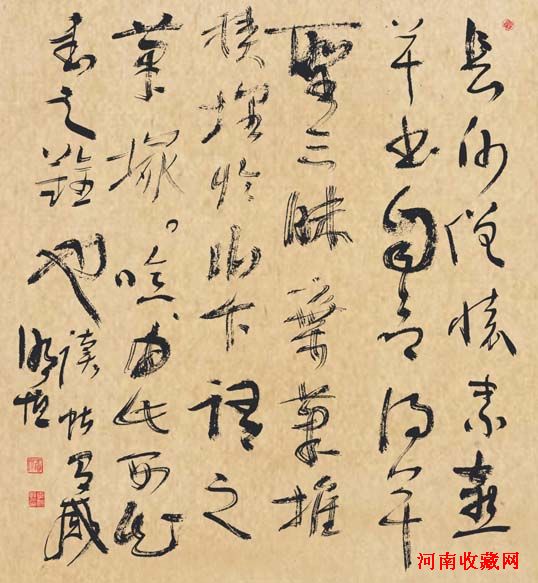 長沙僧懷素喜
草书自言得草
聖三昧棄筆堆
積埋於山下謂之
筆塚。噫由此可
書之難也讀帖有感
恒
河南收藏网